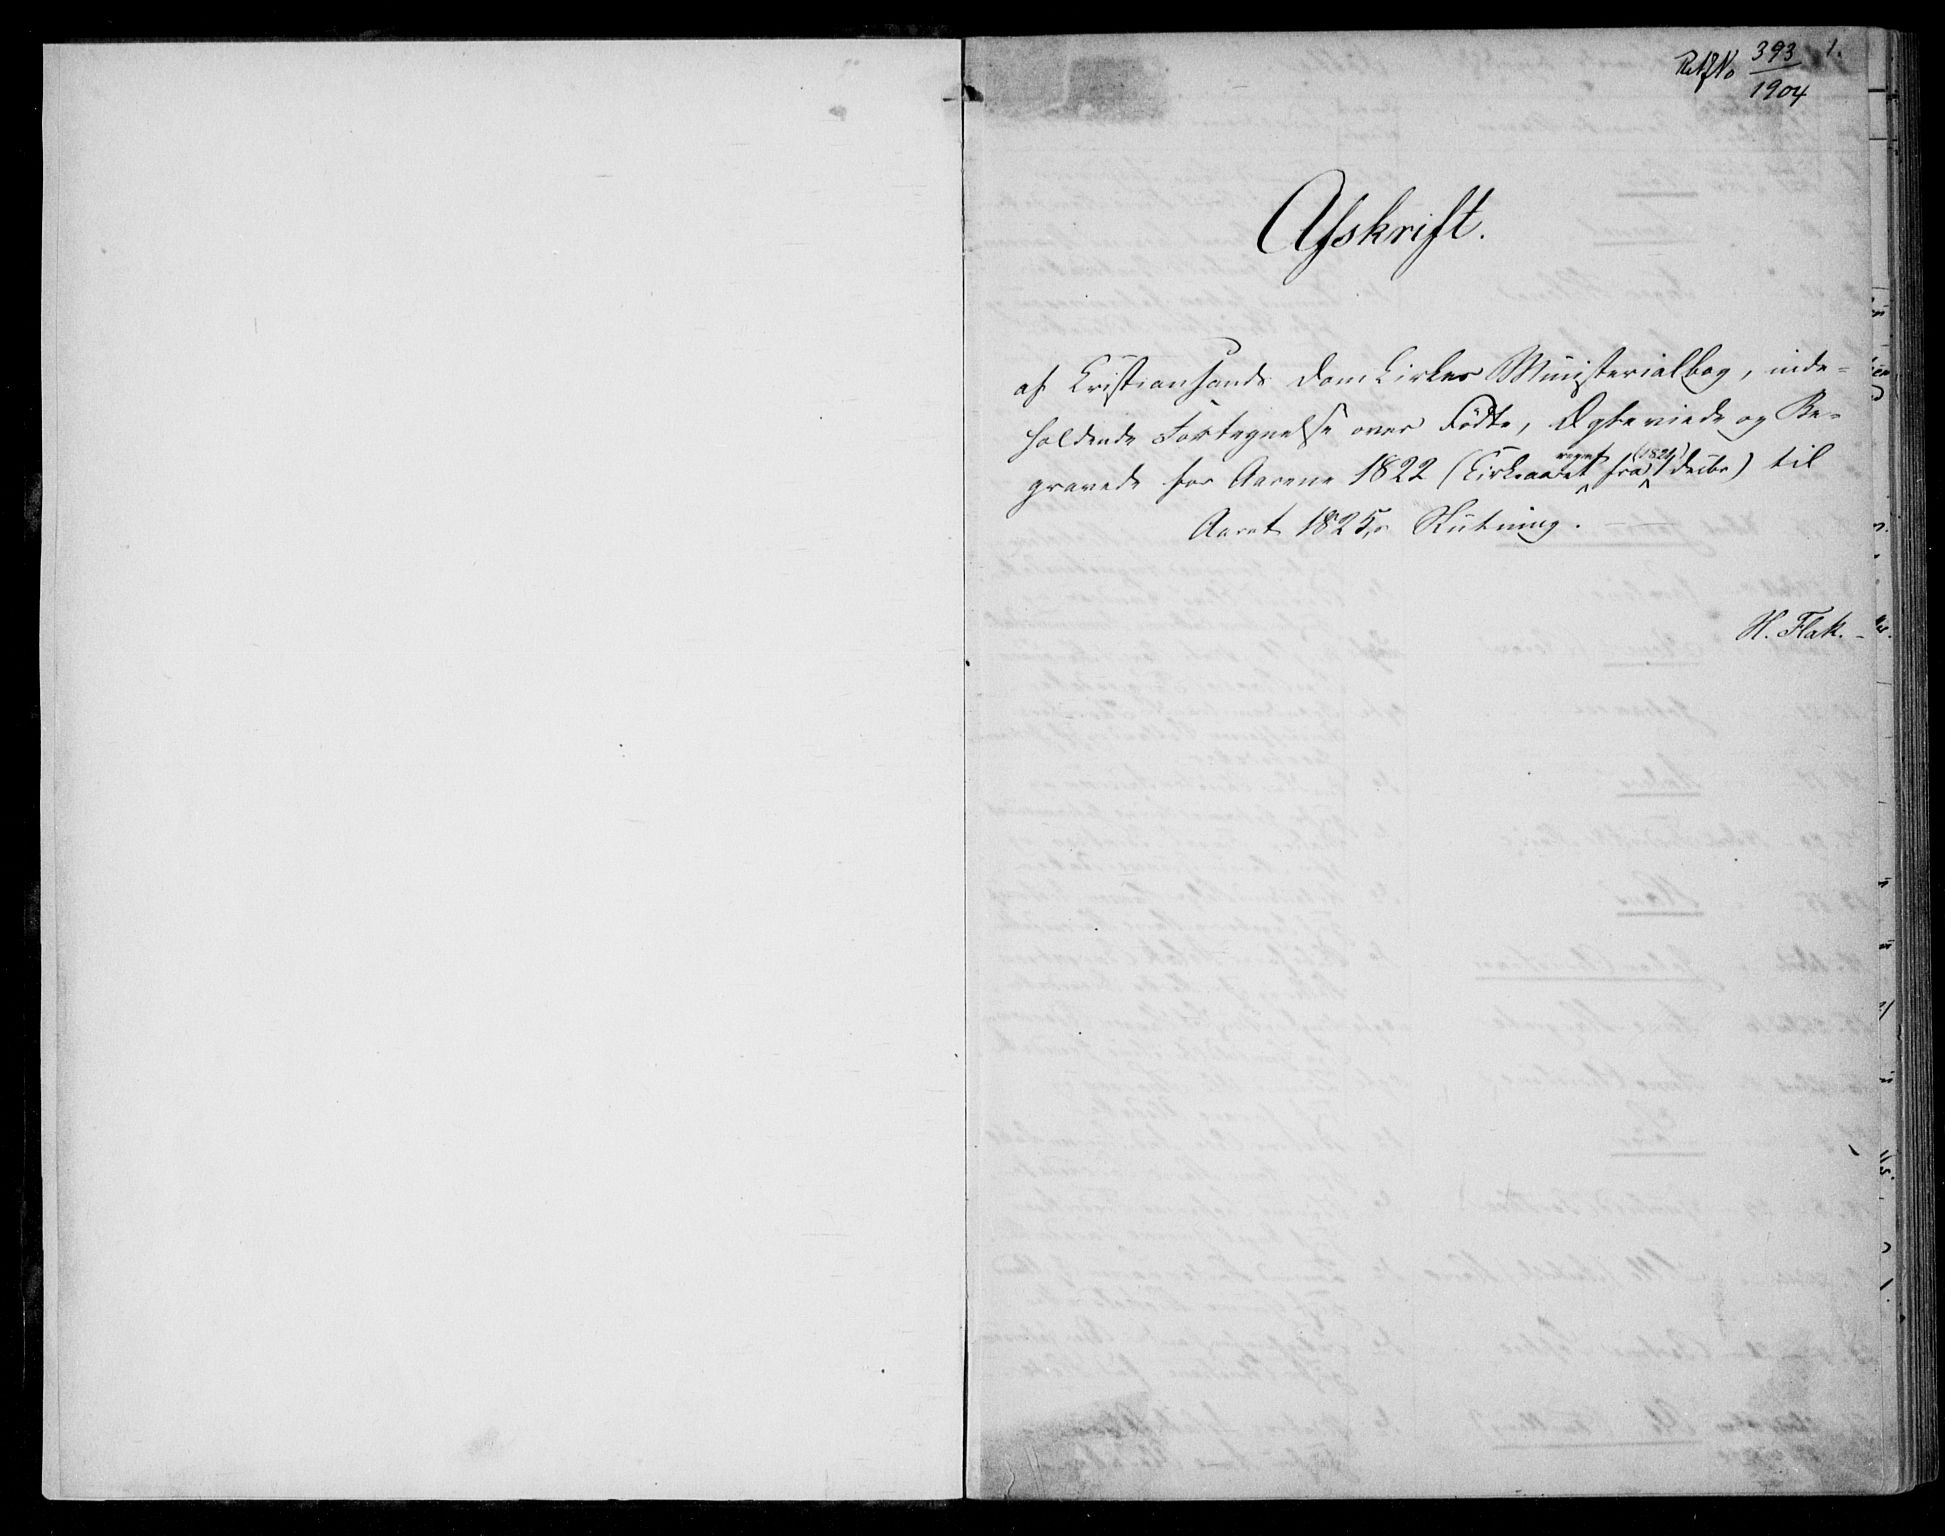 393 1.
1904
Afskrift.
af Cristiansands DomKirkes Ministerialbog, inde=
holdende Fortegnelse over Födte, Ægteviede og Be-
gravede for Aarene 1822 (Kirkeaaret regnet fra (1821) 1 Decbr) til
Aaret 1825,s Slutning. —
H. Flak. -